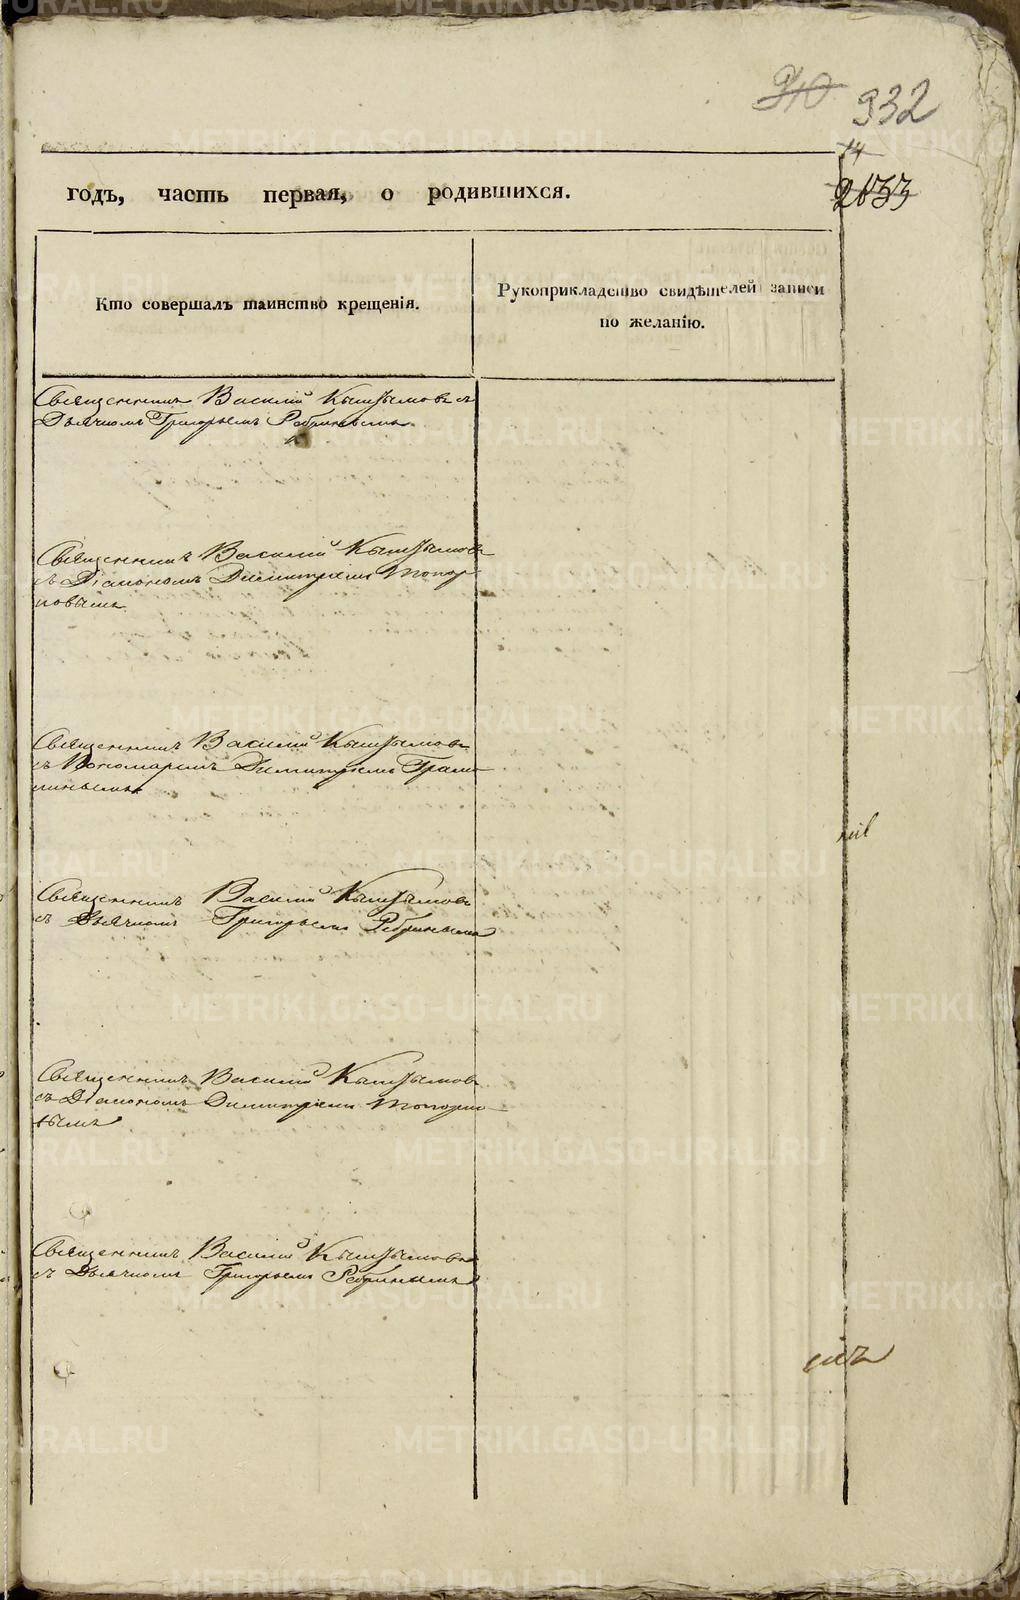 940 932
14
2633
годъ, часть первая, о родившихся.
Кто совершалъ таинство крещенія.
Рукоприкладство свидѣтелей записи
по желанію.
Священникъ Василій Кыштымовъ съ
Дьячкомъ Григорьемъ Ребринымъ
Священникъ Василій Кыштымовъ
съ Діакономъ Димитріемъ Топор
ковымъ
Священникъ Василій Кыштымовъ
съ Пономаремъ Димитріемъ
Священникъ Василій Кыштымовъ
съ Дьячкомъ Григорьемъ Ребринымъ
Священникъ Василій Кыштымовъ
съ Діакономъ Димитріемъ Топорко
вымъ
Священникъ Василій Кыштымовъ
съ Дьячкомъ Григорьемъ Ребринымъ
METRIKI.GASO-URAL.RU